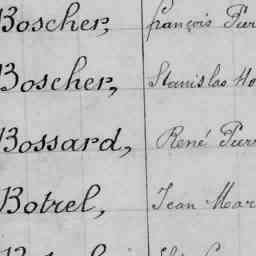 Boscher, François Pier
Boscher, Stanislas
Bossard, René Pierr
Botrel, Jean Mar